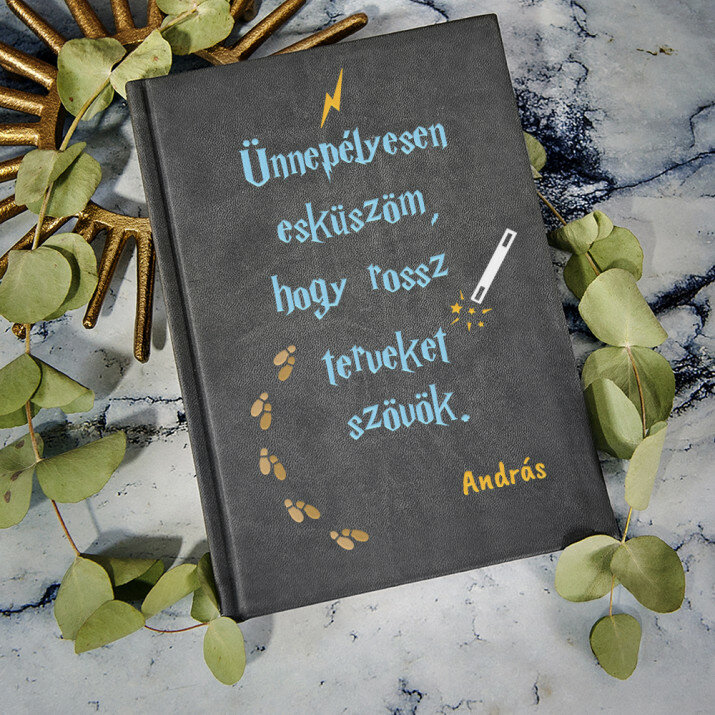 Ünnepélyesen
esküszöm,
hogy rossz
terveket
szövök.
András